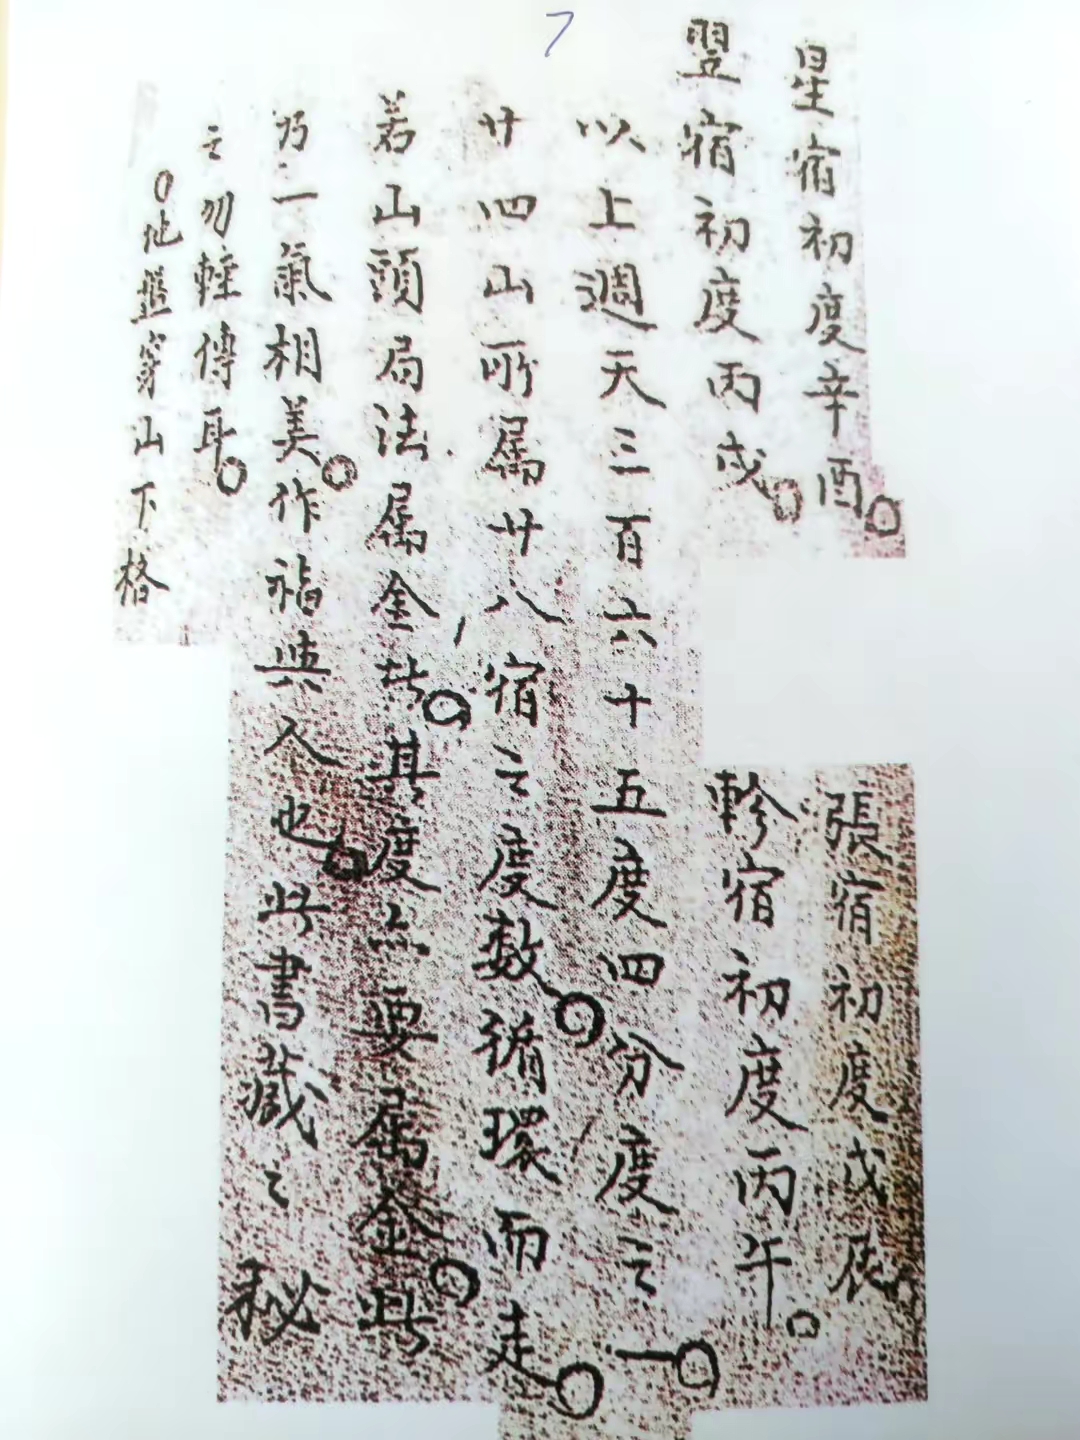 7
星宿初度辛酉。張宿初度戊辰。
翌宿初度丙戌。軫宿初度丙午。
以上週天三百六十五度四分度之一。
廿四山所属廿八宿之度数。循環而走。
若山頭局法属金者。其度亦要属金。此
乃一氣相美。作福與人也。此書藏之秘
之勿輕傳耳。
○地盤穿山下格